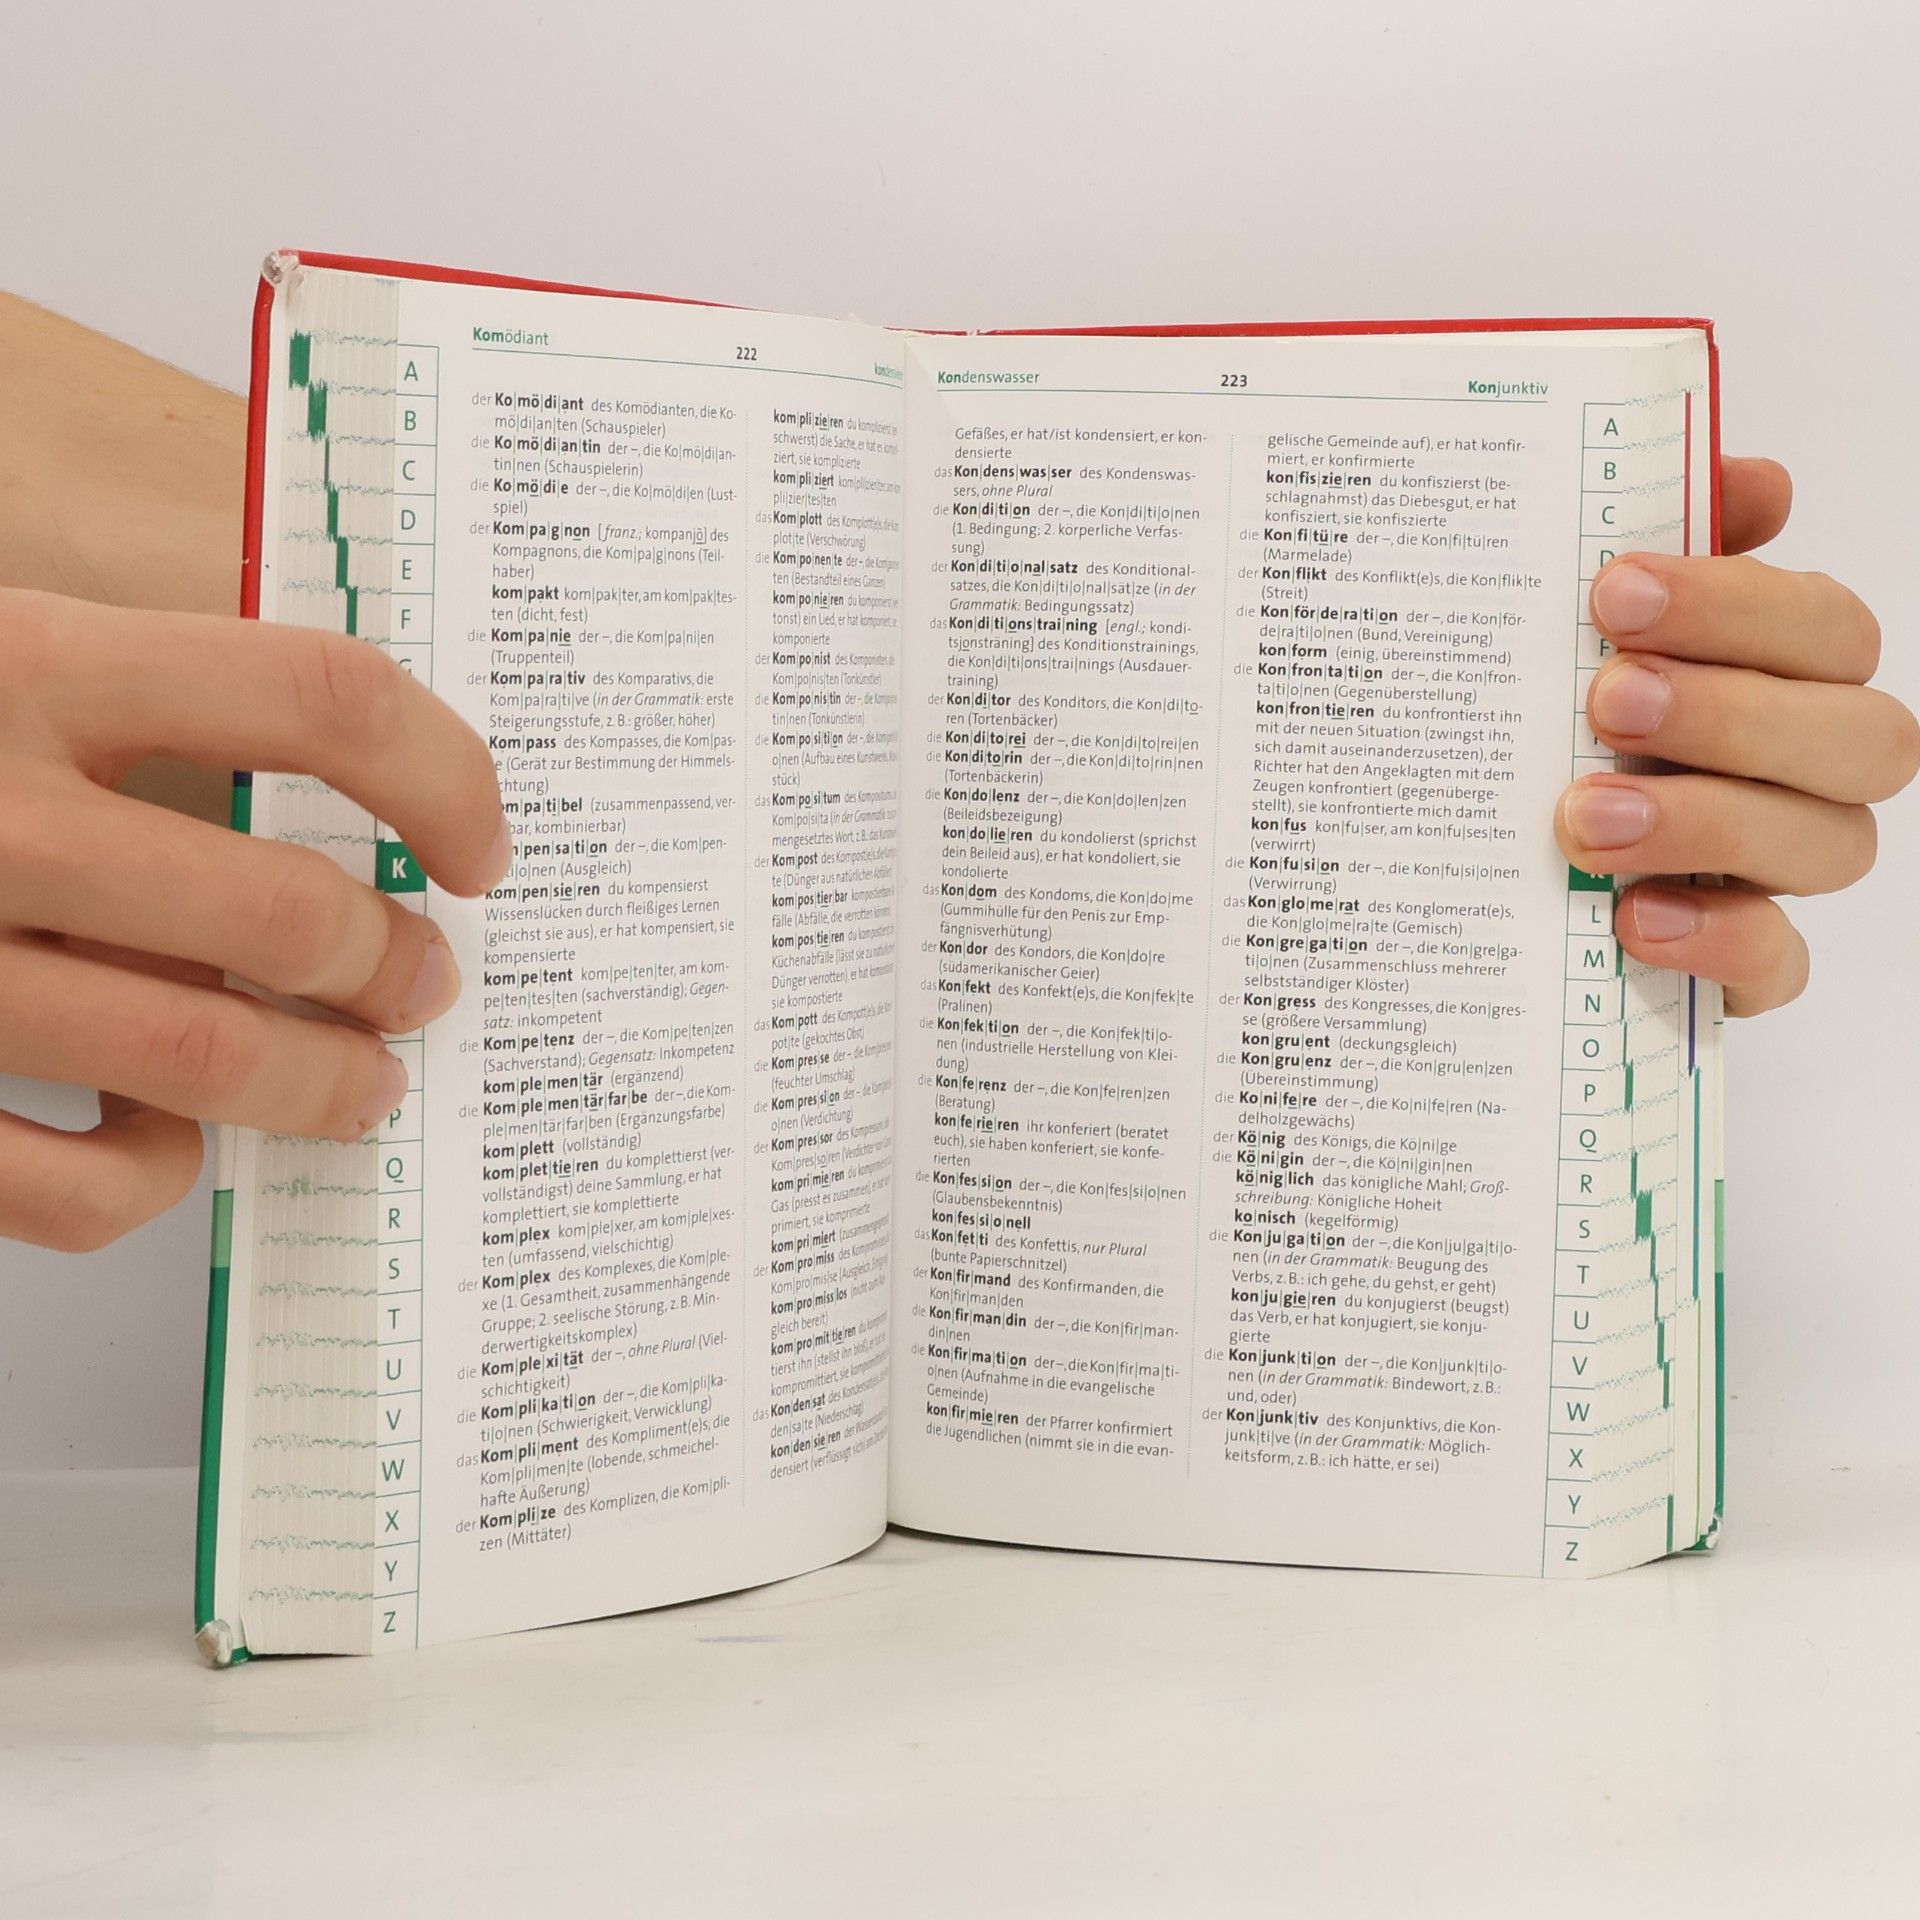 Komödiant
222
der Ko|mö|di|ant des Komödianten, die Ko-
mö|di|an|ten (Schauspieler)
die Ko|mö|di|an|tin der –, die Ko|mö|di|an-
tin|nen (Schauspielerin)
die Ko|mö|di|e der –, die Ko|mö|di|en (Lust-
spiel)
der Kom|pa|g|non [franz.; kompanjõ] des
Kompagnons, die Kom|pa|g|nons (Teil-
haber)
kom|pakt kom|pak|ter, am kom|pak|tes-
ten (dicht, fest)
die Kom|pa|nie der –, die Kom|pa|ni|en
(Truppenteil)
der Kom|pa|ra|tiv des Komparativs, die
Kom|pa|ra|ti|ve (in der Grammatik: erste
Steigerungsstufe, z. B.: größer, höher)
Kom|pass des Kompasses, die Kom|pas-
e (Gerät zur Bestimmung der Himmels-
chtung)
om|pa|ti|bel (zusammenpassend, ver-
bar, kombinierbar)
pen|sa|ti|on der –, die Kom|pen-
ti|o|nen (Ausgleich)
kom|pen|sie|ren du kompensierst
Wissenslücken durch fleißiges Lernen
(gleichst sie aus), er hat kompensiert, sie
kompensierte
kom|pe|tent kom|pe|ten|ter, am kom-
pe|ten|tes|ten (sachverständig); Gegen-
satz: inkompetent
die Kom|pe|tenz der –, die Kom|pe|ten|zen
(Sachverstand); Gegensatz: Inkompetenz
kom|ple|men|tär (ergänzend)
die Kom|ple|men|tär|far|be der –, die Kom-
ple|men|tär|far|ben (Ergänzungsfarbe)
kom|plett (vollständig)
kom|plet|tie|ren du komplettierst (ver-
vollständigst) deine Sammlung, er hat
komplettiert, sie komplettierte
kom|plex kom|ple|xer, am kom|ple|xes-
ten (umfassend, vielschichtig)
der Kom|plex des Komplexes, die Kom|ple-
xe (1. Gesamtheit, zusammenhängende
Gruppe; 2. seelische Störung, z. B. Min-
derwertigkeitskomplex)
die Kom|ple|xi|tät der –, ohne Plural (Viel-
schichtigkeit)
die Kom|pli|ka|ti|on der –, die Kom|pli|ka-
ti|o|nen (Schwierigkeit, Verwicklung)
das Kom|pli|ment des Kompliment(e)s, die
Kom|pli|men|te (lobende, schmeichel-
hafte Äußerung)
der Kom|pli|ze des Komplizen, die Kom|pli-
zen (Mittäter)
kom|pli|zie|ren du
schwerst) die Sache, er hat es
ziert, sie komplizierte
kom|pli|ziert
pli|zier|tes|ten
das Kom|plott des Komplott(e)s, die
plot|te (Verschwörung)
die Kom|po|nen|te der –, die
ten (Bestandteil eines Ganzen)
kom|po|nie|ren du
tonst) ein Lied, er hat komponiert,
komponierte
der Kom|po|nist des Komponisten, die
Kom|po|nis|ten (Tonkünstler)
die Kom|po|nis|tin der –, die
tin|nen (Tonkünstlerin)
die Kom|po|si|ti|on der –, die
o|nen (Aufbau eines Kunstwerks,
stück)
das Kom|po|si|tum des Kompositums,
Kom|po|si|ta (in der Grammatik:
mengesetztes Wort, z. B.: das
der Kom|post des Kompost(e)s, die
te (Dünger aus natürlichen Abfällen)
kom|pos|tier|bar
fälle (Abfälle, die verrotten
kom|pos|tie|ren du
Küchenabfälle (lässt sie zu
Dünger verrotten), er hat
sie kompostierte
das Kom|pott des Kompott(e)s, die
pot|te (gekochtes Obst)
die Kom|pres|se der –, die
(feuchter Umschlag)
die Kom|pres|si|on der –, die
o|nen (Verdichtung)
der Kom|pres|sor des Kompressors,
Kom|pres|so|ren
kom|pri|mie|ren du
Gas (presst es zusammen), er hat
primiert, sie komprimierte
kom|pri|miert
der Kom|pro|miss des Kompromisses,
Kom|pro|mis|se (Ausgleich,
kom|pro|miss|los (nicht zum
gleich bereit)
kom|pro|mit|tie|ren du
tierst ihn (stellst ihn bloß), er
kompromittiert, sie
das Kon|den|sat des Kondensat(e)s, die
den|sa|te (Niederschlag)
kon|den|sie|ren der
densiert (verflüssigt sich)
A
B
C
D
E
F
K
P
Q
R
S
T
U
V
W
X
Y
Z
Kondenswasser
223
Konjunktiv
Gefäßes, er hat/ist kondensiert, er kon-
densierte
das Kon|dens|was|ser des Kondenswas-
sers, ohne Plural
die Kon|di|ti|on der –, die Kon|di|ti|o|nen
(1. Bedingung; 2. körperliche Verfas-
sung)
der Kon|di|ti|o|nal|satz des Konditional-
satzes, die Kon|di|ti|o|nal|sät|ze (in der
Grammatik: Bedingungssatz)
das Kon|di|ti|ons|trai|ning [engl.; kondi-
tsjonsträning] des Konditionstrainings,
die Kon|di|ti|ons|trai|nings (Ausdauer-
training)
der Kon|di|tor des Konditors, die Kon|di|to-
ren (Tortenbäcker)
die Kon|di|to|rei der –, die Kon|di|to|rei|en
die Kon|di|to|rin der –, die Kon|di|to|rin|nen
(Tortenbäckerin)
die Kon|do|lenz der –, die Kon|do|len|zen
(Beileidsbezeigung)
kon|do|lie|ren du kondolierst (sprichst
dein Beileid aus), er hat kondoliert, sie
kondolierte
das Kon|dom des Kondoms, die Kon|do|me
(Gummihülle für den Penis zur Emp-
fängnisverhütung)
der Kon|dor des Kondors, die Kon|do|re
(südamerikanischer Geier)
das Kon|fekt des Konfekt(e)s, die Kon|fek|te
(Pralinen)
die Kon|fek|ti|on der –, die Kon|fek|ti|o-
nen (industrielle Herstellung von Klei-
dung)
die Kon|fe|renz der –, die Kon|fe|ren|zen
(Beratung)
kon|fe|rie|ren ihr konferiert (beratet
euch), sie haben konferiert, sie konfe-
rierten
die Kon|fes|si|on der –, die Kon|fes|si|o|nen
(Glaubensbekenntnis)
kon|fes|si|o|nell
das Kon|fet|ti des Konfettis, nur Plural
(bunte Papierschnitzel)
der Kon|fir|mand des Konfirmanden, die
Kon|fir|man|den
die Kon|fir|man|din der –, die Kon|fir|man-
din|nen
die Kon|fir|ma|ti|on der –, die Kon|fir|ma|ti-
o|nen (Aufnahme in die evangelische
Gemeinde)
kon|fir|mie|ren der Pfarrer konfirmiert
die Jugendlichen (nimmt sie in die evan-
gelische Gemeinde auf), er hat konfir-
miert, er konfirmierte
kon|fis|zie|ren du konfiszierst (be-
schlagnahmst) das Diebesgut, er hat
konfisziert, sie konfiszierte
die Kon|fi|tü|re der –, die Kon|fi|tü|ren
(Marmelade)
der Kon|flikt des Konflikt(e)s, die Kon|flik|te
(Streit)
die Kon|för|de|ra|ti|on der –, die Kon|för-
de|ra|ti|o|nen (Bund, Vereinigung)
kon|form (einig, übereinstimmend)
die Kon|fron|ta|ti|on der –, die Kon|fron-
ta|ti|o|nen (Gegenüberstellung)
kon|fron|tie|ren du konfrontierst ihn
mit der neuen Situation (zwingst ihn,
sich damit auseinanderzusetzen), der
Richter hat den Angeklagten mit dem
Zeugen konfrontiert (gegenüberge-
stellt), sie konfrontierte mich damit
kon|fus kon|fu|ser, am kon|fu|ses|ten
(verwirrt)
die Kon|fu|si|on der –, die Kon|fu|si|o|nen
(Verwirrung)
das Kon|glo|me|rat des Konglomerat(e)s,
die Kon|glo|me|ra|te (Gemisch)
die Kon|gre|ga|ti|on der –, die Kon|gre|ga-
ti|o|nen (Zusammenschluss mehrerer
selbstständiger Klöster)
der Kon|gress des Kongresses, die Kon|gres-
se (größere Versammlung)
kon|gru|ent (deckungsgleich)
die Kon|gru|enz der –, die Kon|gru|en|zen
(Übereinstimmung)
die Ko|ni|fe|re der –, die Ko|ni|fe|ren (Na-
delholzgewächs)
der Kö|nig des Königs, die Kö|ni|ge
die Kö|ni|gin der –, die Kö|ni|gin|nen
kö|nig|lich das königliche Mahl; Groß-
schreibung: Königliche Hoheit
ko|nisch (kegelförmig)
die Kon|ju|ga|ti|on der –, die Kon|ju|ga|ti|o-
nen (in der Grammatik: Beugung des
Verbs, z. B.: ich gehe, du gehst, er geht)
kon|ju|gie|ren du konjugierst (beugst)
das Verb, er hat konjugiert, sie konju-
gierte
die Kon|junk|ti|on der –, die Kon|junk|ti|o-
nen (in der Grammatik: Bindewort, z. B.:
und, oder)
der Kon|junk|tiv des Konjunktivs, die Kon-
junk|ti|ve (in der Grammatik: Möglich-
keitsform, z. B.: ich hätte, er sei)
A
B
C
D
F
L
M
N
O
P
Q
R
S
T
U
V
W
X
Y
Z